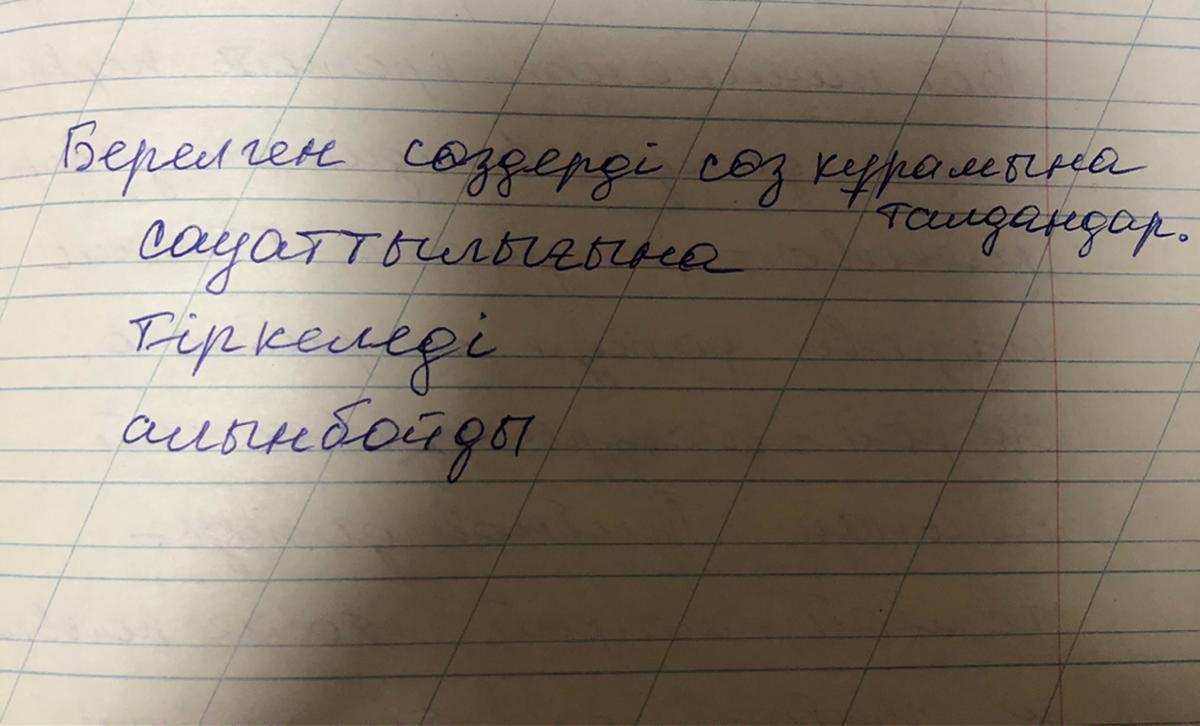 Берелген сөздерді сөз құрамына
талдандар.
сауаттылығына
тіркеледі
алынбойды